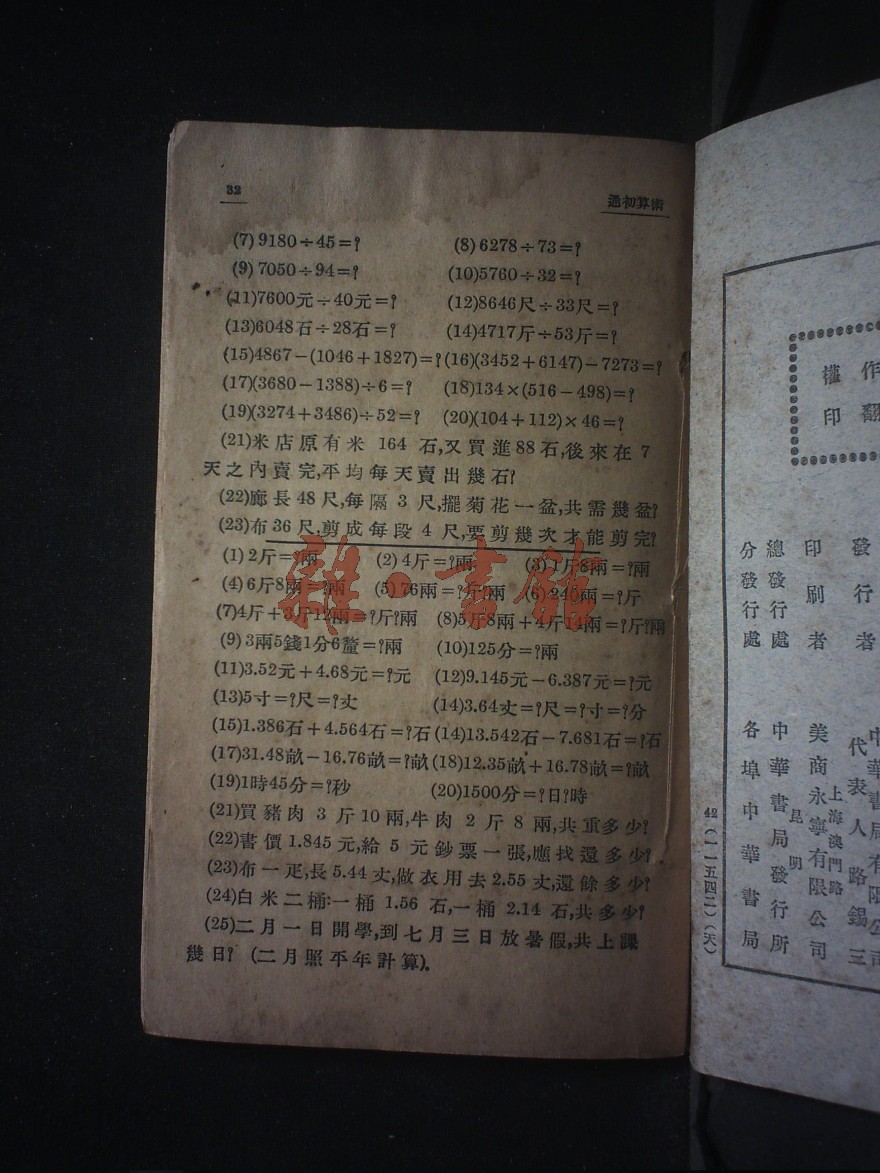 32
通初算術
(7) 9180÷45=?
(8) 6278÷73=?
(9) 7050÷94=?
(10)5760÷32=?
(11)7600元÷40元=?
(12)8646尺÷33尺=?
(13)6048石÷28石=?
(14)4717斤÷53斤=?
(15)4867-(1046+1827)=?
(16)(3452+6147)-7273=?
(17)(3680-1388)÷6=?
(18)134×(516-498)=?
(19)(3274+3486)÷52=?
(20)(104+112)×46=?
(21)米店原有米 164 石,又買進88石,後來在 7
天之內賣完,平均每天賣出幾石?
(22)廊長48尺,每隔 3 尺,擺菊花一盆,共需幾盆?
(23)布36尺,剪成每段 4 尺,要剪幾次才能剪完?
(1) 2斤=?兩
(2) 4斤=?兩
(3) 1斤8兩=?兩
(4) 6斤8兩=?兩
(5) 76兩=?斤?兩
(6) 240兩=?斤
(7)4斤+3斤12兩=?斤?兩
(8)5斤8兩+4斤4兩=?斤?兩
(9) 3兩5錢1分6釐=?兩
(10)125分=?兩
(11)3.52元+4.68元=?元
(12)9.145元-6.387元=?元
(13)5寸=?尺=?丈
(14)3.64丈=?尺=?寸=?分
(15)1.386石+4.564石=?石
(14)13.542石-7.681石=?石
(17)31.48畝-16.76畝=?畝
(18)12.35畝+16.78畝=?畝
(19)1時45分=?秒
(20)1500分=?日?時
(21)買豬肉 3 斤10兩,牛肉 2 斤 8 兩,共重多少?
(22)書價1.845元,給 5 元鈔票一張,應找還多少?
(23)布一疋,長5.44丈,做衣用去2.55丈,還餘多少?
(24)白米二桶:一桶 1.56 石,一桶 2.14 石,共多少?
(25)二月一日開學,到七月三日放暑假,共上課
幾日? (二月照平年計算).
雜·書館
作
權
翻
印
發行者
中華書局有限公司
代表人 路錫三
印刷者
美商永寧有限公司
上海澳門路
總發行處
中華書局發行所
昆明
分發行處
各埠中華書局
42
(一一五四二)(天)